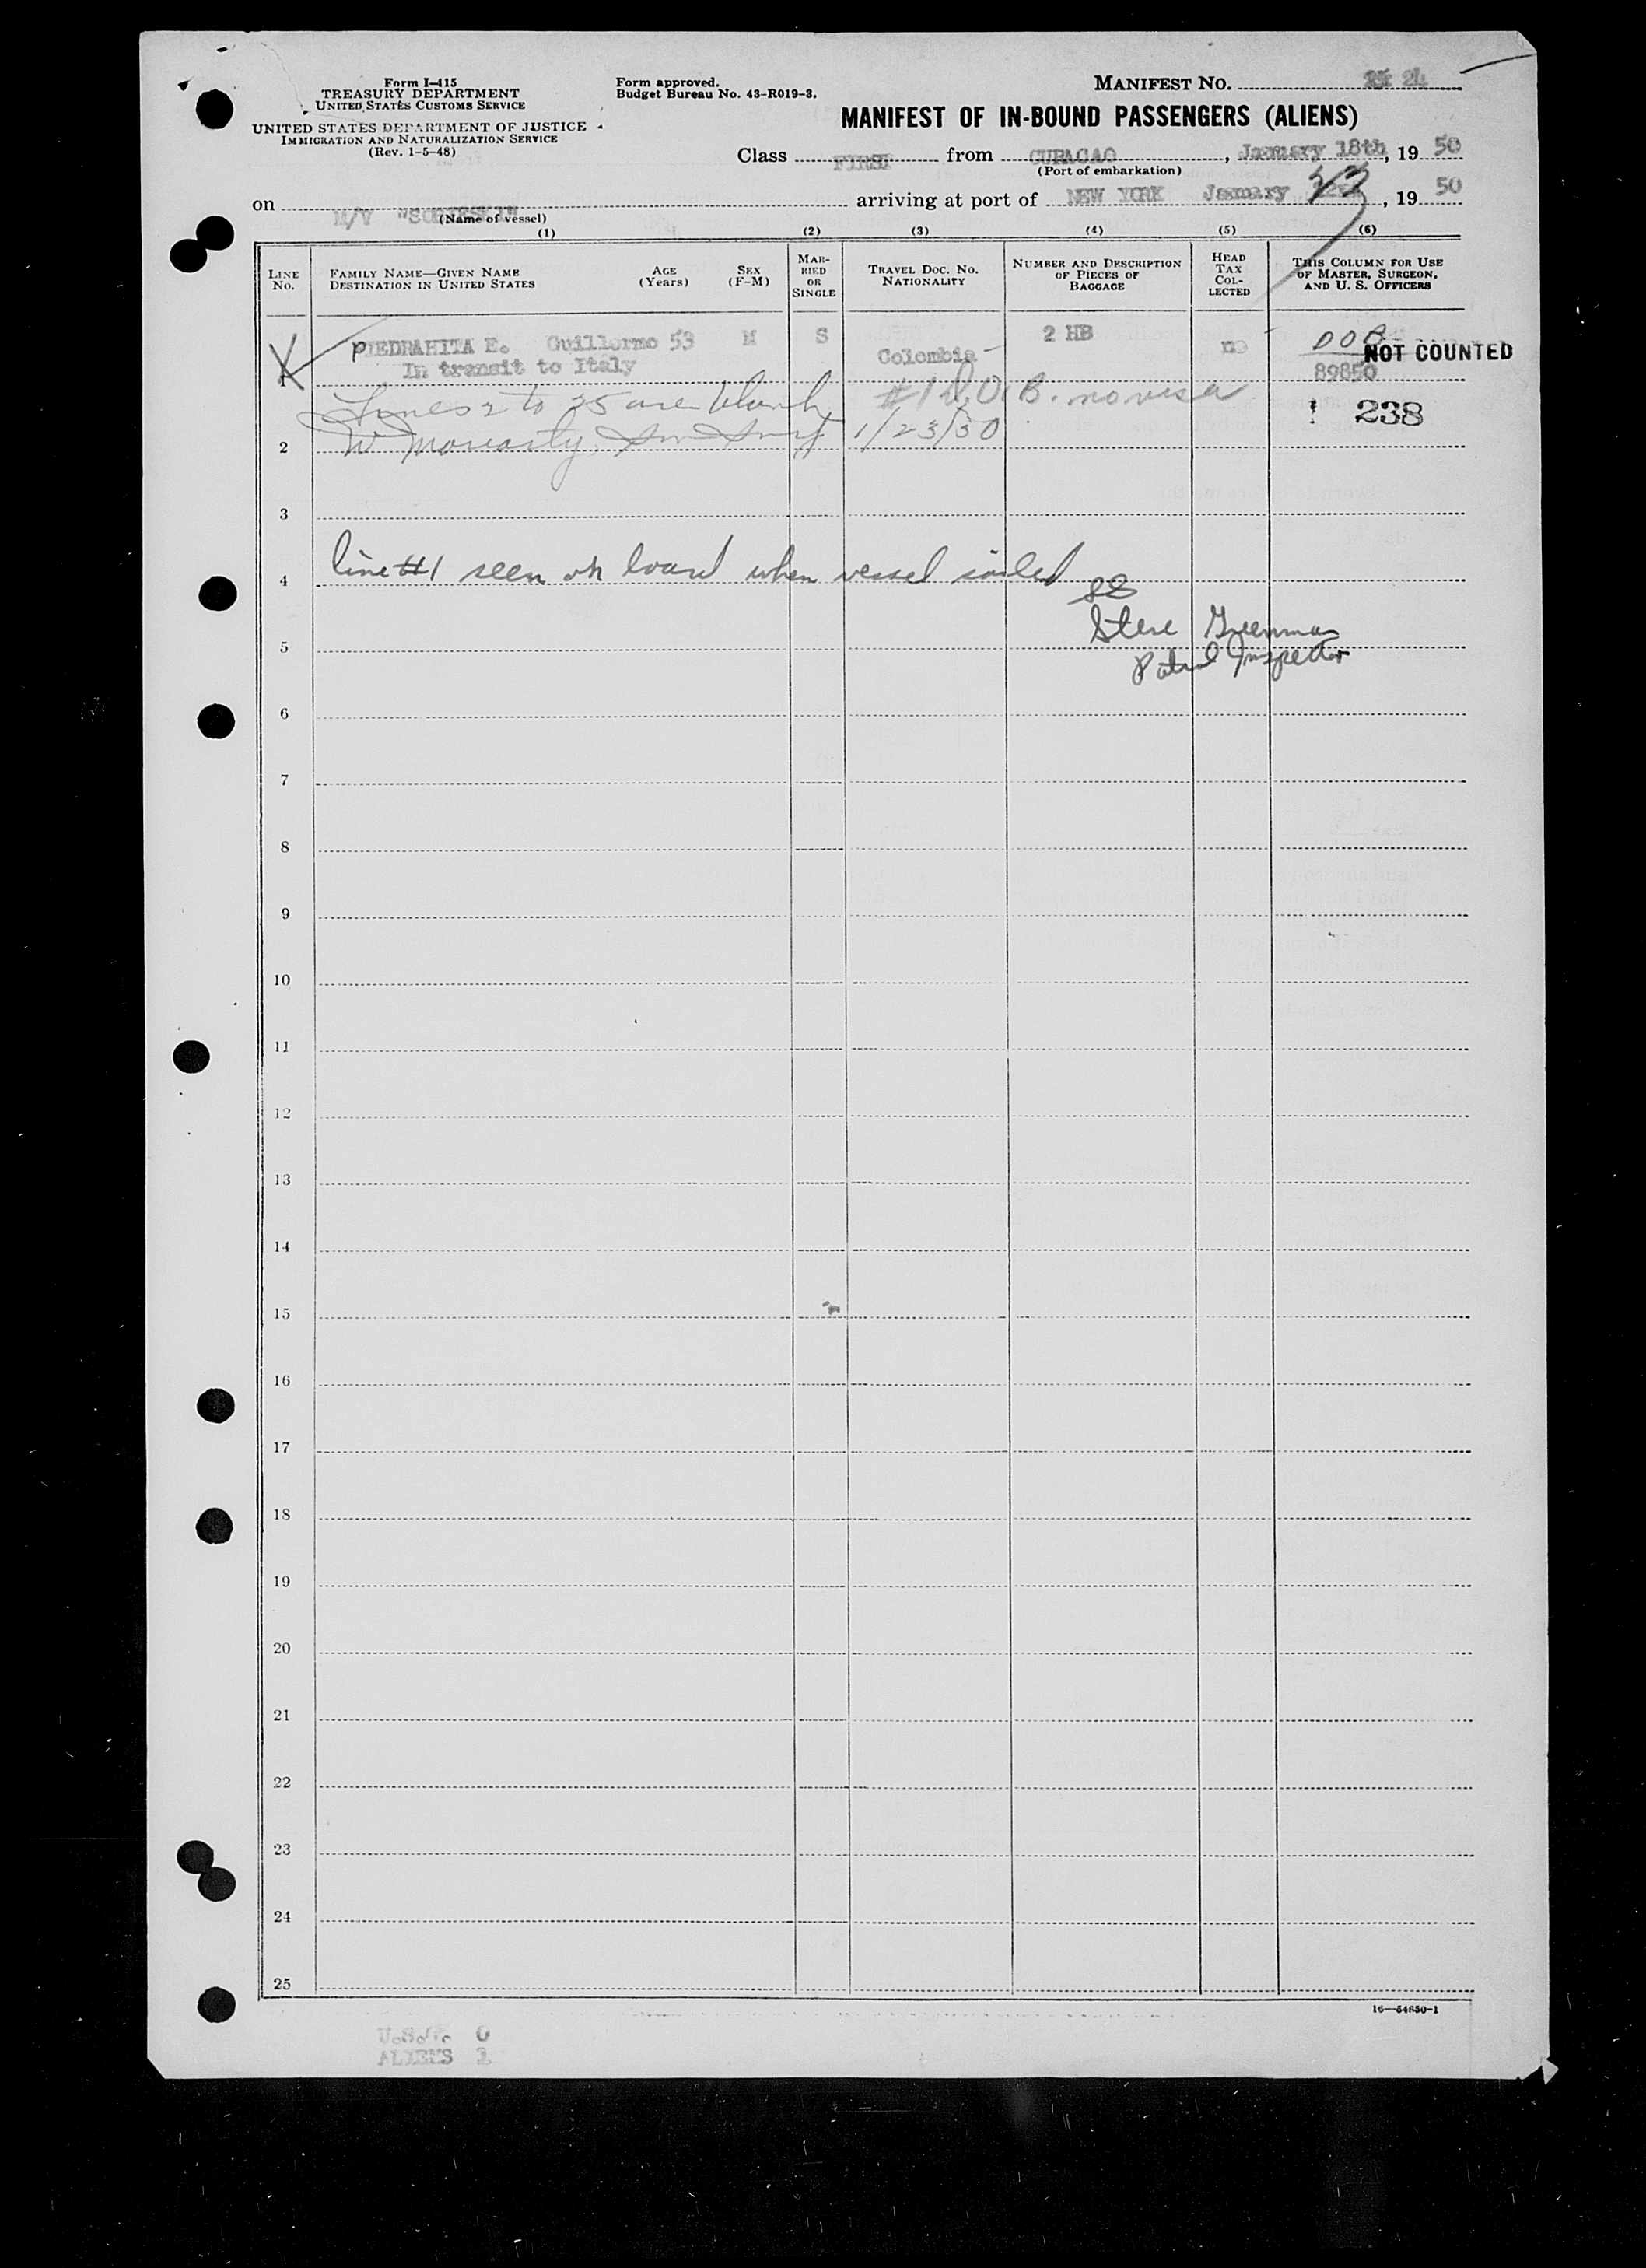 Form I-415
TREASURY DEPARTMENT
UNITED STATES CUSTOMS SERVICE
UNITED STATES DEPARTMENT OF JUSTICE
IMMIGRATION AND NATURALIZATION SERVICE
(Rev. 1-5-48)
Form approved.
Budget Bureau No. 43-R019-3.
MANIFEST NO. 24
MANIFEST OF IN-BOUND PASSENGERS (ALIENS)
Class FIRST from CURACAO, January 18th, 19 50
(Port of embarkation)
on M/V "SOBIESKI" arriving at port of NEW YORK January 23, 19 50
(Name of vessel)
(1) (2) (3) (4) (5) (6)
LINE No.
FAMILY NAME—GIVEN NAME
DESTINATION IN UNITED STATES
AGE (Years)
SEX (F-M)
MARRIED OR SINGLE
TRAVEL DOC. NO. NATIONALITY
NUMBER AND DESCRIPTION OF PIECES OF BAGGAGE
HEAD TAX COLLECTED
THIS COLUMN FOR USE OF MASTER, SURGEON, AND U. S. OFFICERS
1 PIEDRAHITA E. Guillermo 53 M S Colombia 2 HB no DOB NOT COUNTED
In transit to Italy 89850
Lines 2 to 25 are blank #1 D.O.B. no visa 238
2 W Moriarty 1/23/50
3
4 line #1 seen on board when vessel sailed
Steve Greenman
5 Patrol Inspector
6
7
8
9
10
11
12
13
14
15
16
17
18
19
20
21
22
23
24
25
16—54650-1
U.S.C. 0
ALIENS 1